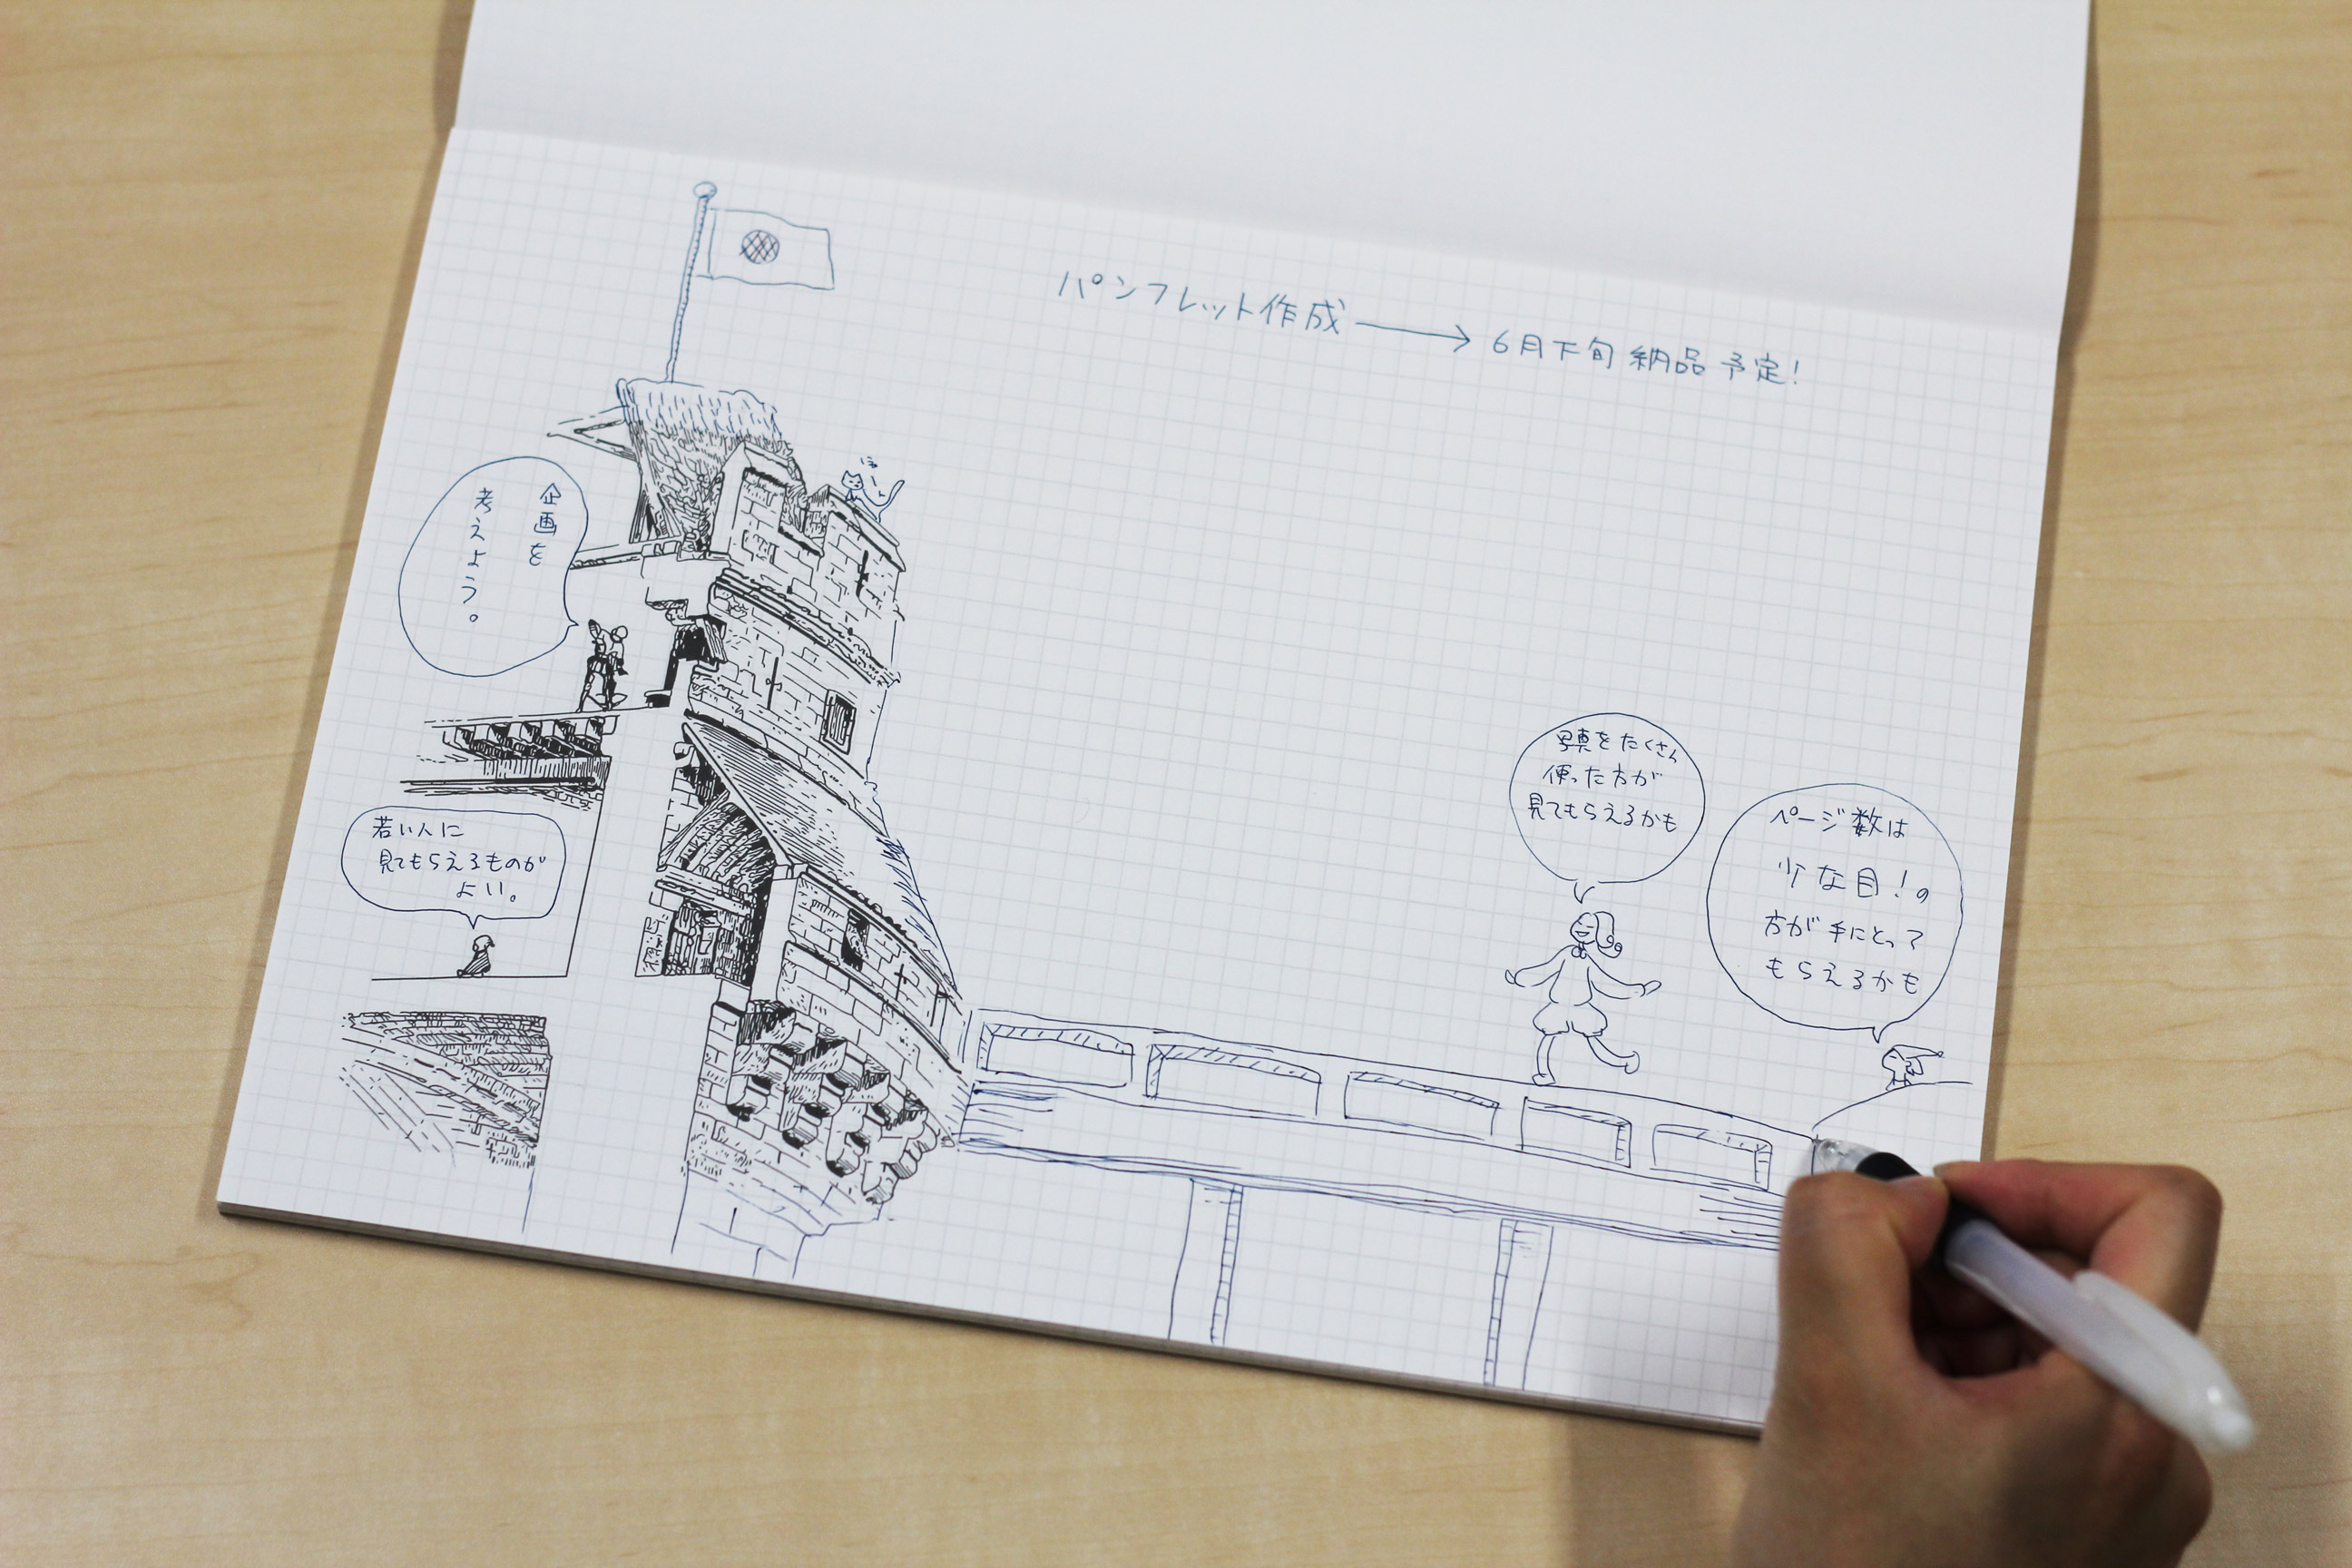 パンフレット作成→6月下旬納品予定!
企画を
考えよう。
若い人に
見てもらえるものが
よい。
写真をたくさん
使った方が
見てもらえるかも
ページ数は
少な目!の
方が手にとって
もらえるかも